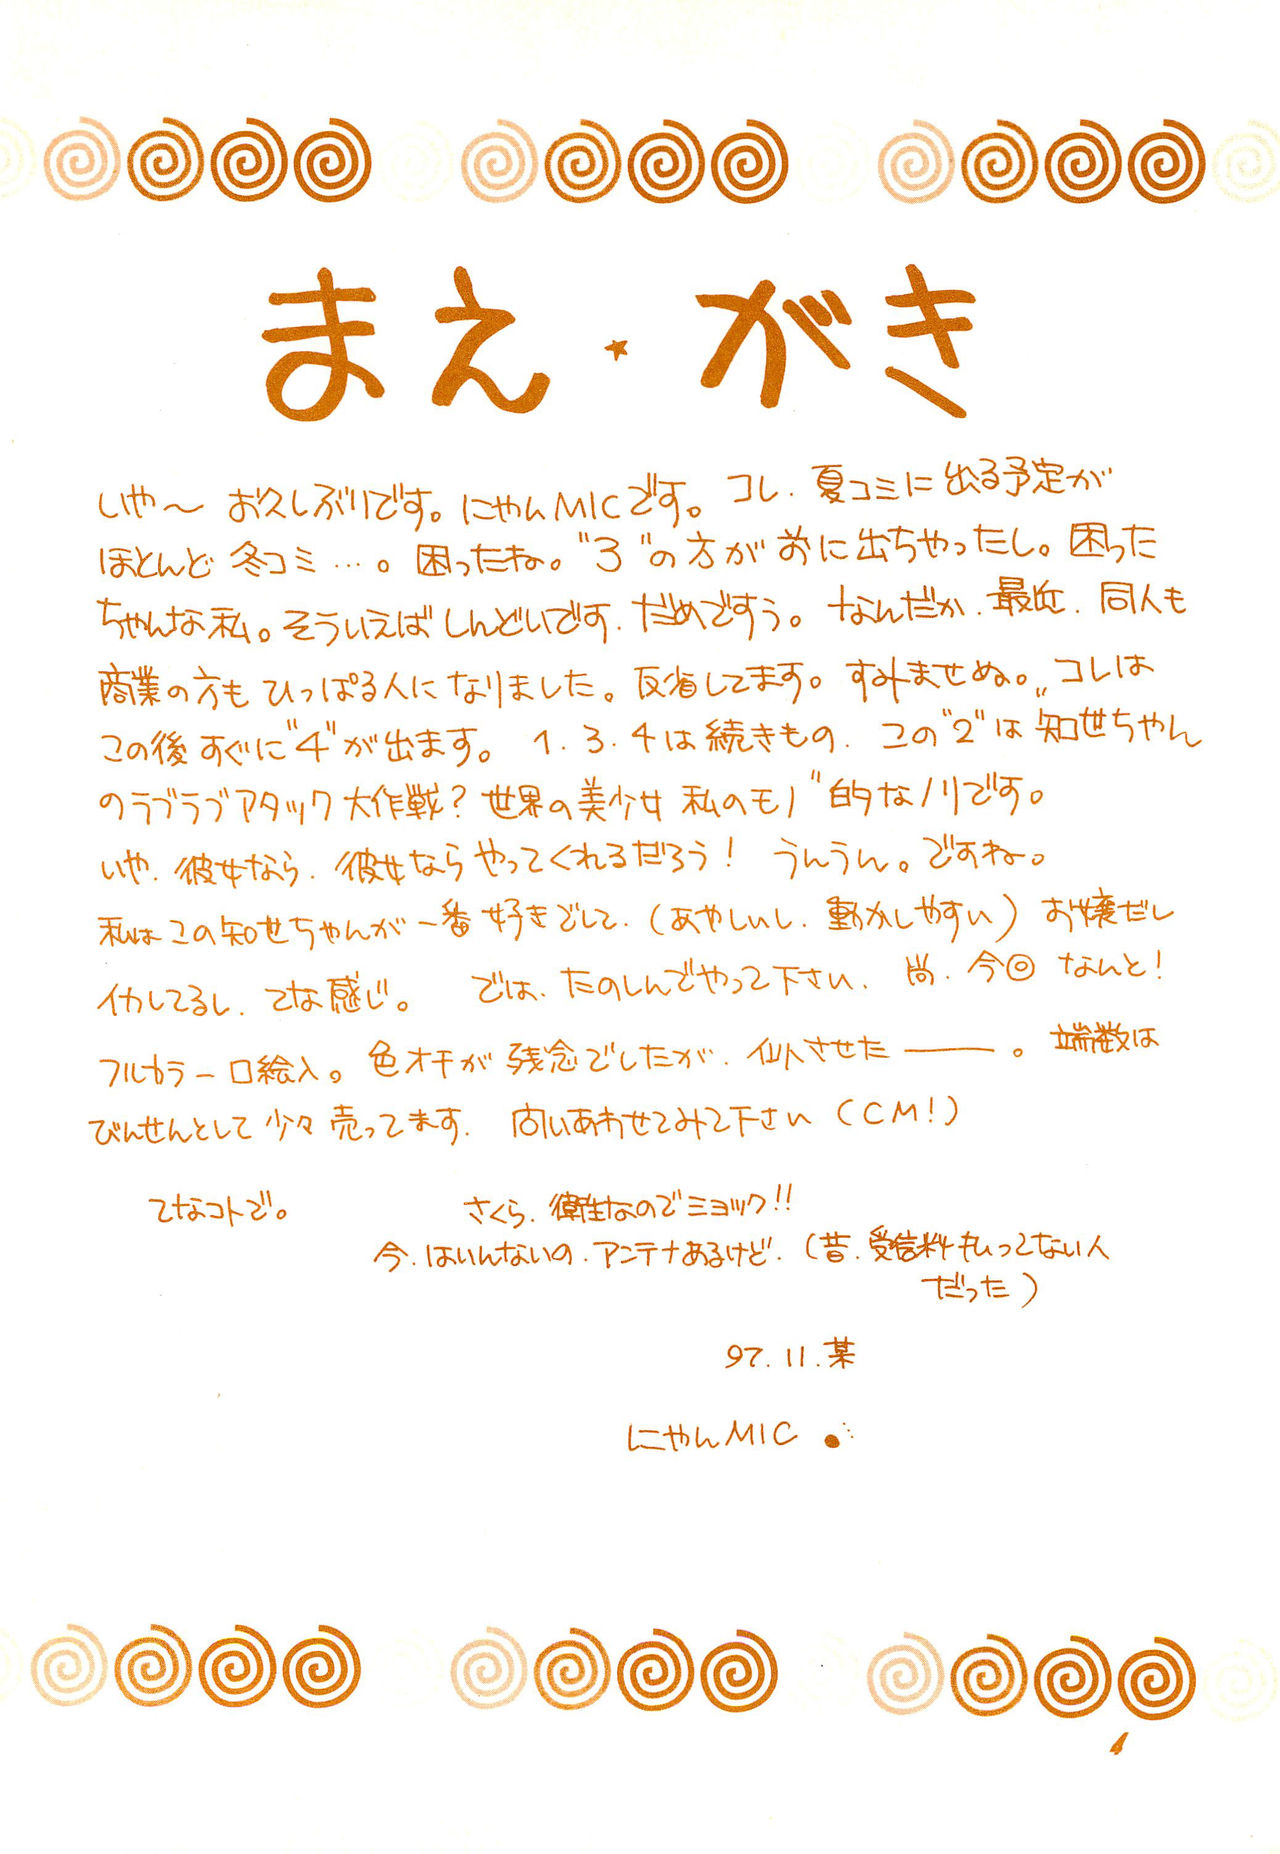 まえ☆がき
いや〜 お久しぶりです。にゃんMICです。コレ、夏コミに出る予定が
ほとんど冬コミ…。困ったね。"3"の方が前に出ちゃったし。困った
ちゃんな私。そういえばしんどいです、だめですぅ。なんだか、最近、同人も
商業の方もひっぱる人になりました。反省してます。すみませぬ。コレは
この後すぐに"4"が出ます。1.3.4は続きもの、この"2"は知世ちゃん
のラブラブアタック大作戦?"世界の美少女 私のモノ"的なノリです。
いや、彼女なら、彼女ならやってくれるだろう! うんうん。ですね。
私はこの知世ちゃんが一番好きでして、(あやしいし、動かしやすい)お嬢だし
イカしてるし、てな感じ。 では、たのしんでやって下さい、尚、今回 なんと!
フルカラー口絵入。色オチが残念でしたが、仙人させた――。端数は
びんせんとして少々売ってます、問いあわせてみて下さい(CM!)
てなコトで。
さくら、衛生なのでミョック!!
今、はいんないの、アンテナあるけど、(昔、受信料もいってない人
だった)
97.11.某
にゃんMIC